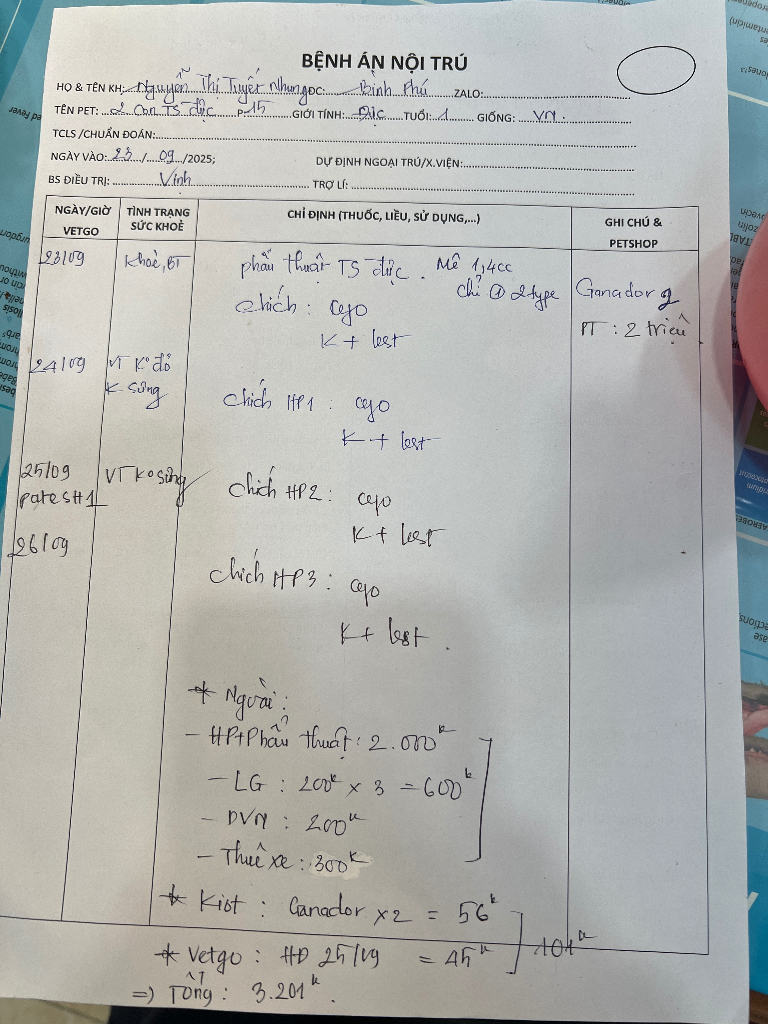 BỆNH ÁN NỘI TRÚ
HỌ & TÊN KH: Nguyễn Thị Tuyết Nhung ĐC: Bình Phú ZALO:
TÊN PET: 2 con TS đực P 15 GIỚI TÍNH: Đực TUỔI: 1 GIỐNG: VN.
TCLS /CHUẨN ĐOÁN:
NGÀY VÀO: 23 / 09 /2025; DỰ ĐỊNH NGOẠI TRÚ/X.VIỆN:
BS ĐIỀU TRỊ: Vinh TRỢ LÍ:
NGÀY/GIỜ VETGO TÌNH TRẠNG SỨC KHOẺ CHỈ ĐỊNH (THUỐC, LIỀU, SỬ DỤNG,...) GHI CHÚ & PETSHOP
23/09 Khoẻ, BT phẫu thuật TS đực. Mê 1,4cc
chỉ 1 2 type Ganador 2
Chích: cefo PT: 2 triệu
K + lest
24/09 VT K° đỏ
K sưng Chích HP1: cefo
K + lest
25/09 VT K° sưng Chích HP2: cefo
pate SH1 K + lest
26/09 Chích HP3: cefo
K + lest.
* Ngoài:
- HP+Phẫu thuật: 2.000k
- LG: 200k x 3 = 600k
- DVN: 200k
- Thuê xe: 300k
* Kiot: Ganador x2 = 56k
* Vetgo: HĐ 25/09 = 45k 101k
=) Tổng: 3.201k.